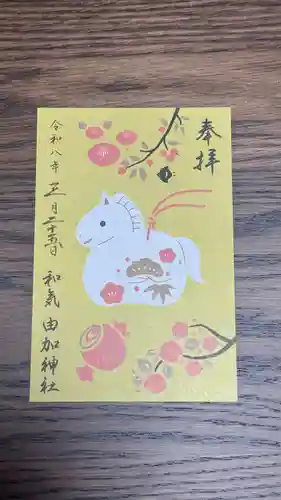 奉拝
令和八年 正月二十五日 和気 由加神社